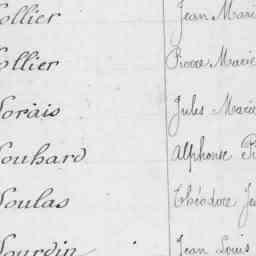 ollier Jean Mari
ollier Pierre Marie
orais Jules Marie
ouhard Alphonse Pi
oulas Théodore Je
ourdin Jean Louis